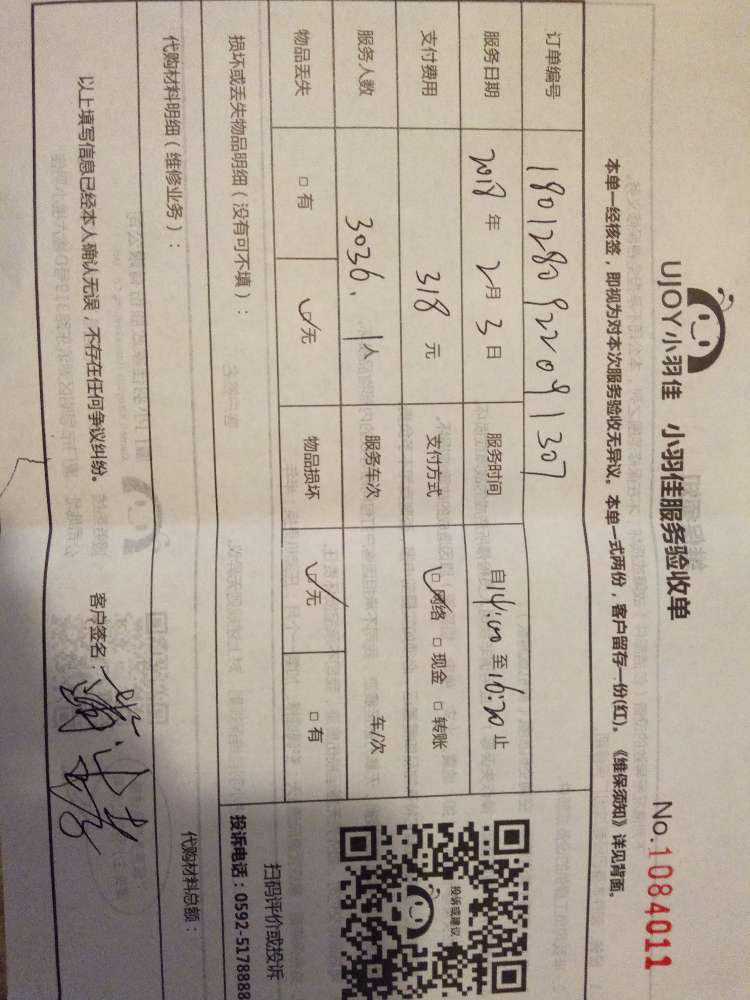 UJOY小羽佳 小羽佳服务验收单 No.1084011
本单一经核签，即视为对本次服务验收无异议。本单一式两份，客户留存一份(红)。《维保须知》详见背面。
订单编号 1801280922091307
服务日期 2018年2月3日 服务时间 自14:00至16:20止
支付费用 318元 支付方式 ☑网络 □现金 □转账
服务人数 3036. 1人 服务车次 车/次
物品丢失 □有 ☑无 物品损坏 ☑无 □有
损坏或丢失物品明细（没有可不填）：
代购材料明细（维修业务）： 代购材料总额：
以上填写信息已经本人确认无误，不存在任何争议纠纷。 客户签名：
投诉或建议
扫码评价或投诉
投诉电话：0592-5178888